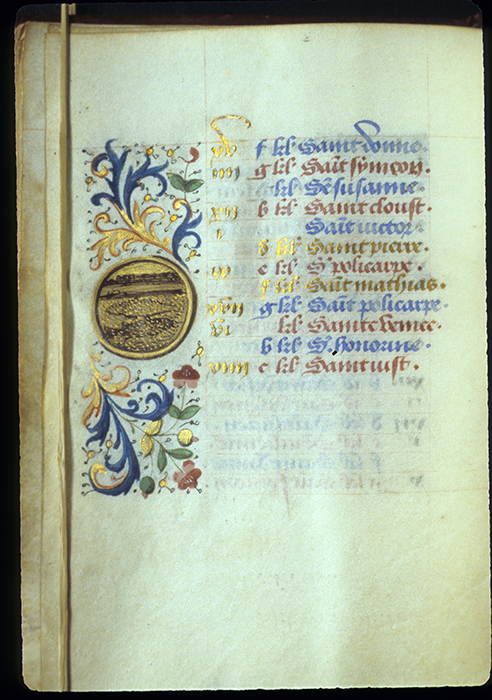 xv f kl Saint donne.
iiii g kl Saĩt symeon.
kl Ste susanne.
xii b kl Saint cloust.
i Saint victor
d kl Saint pierre.
e kl St policarpe.
f kl Saint mathias.
xvii g kl Saĩt policarpe.
vi kl Sainte venice.
b kl Ste honorine.
xiiii c kl Saint iust.